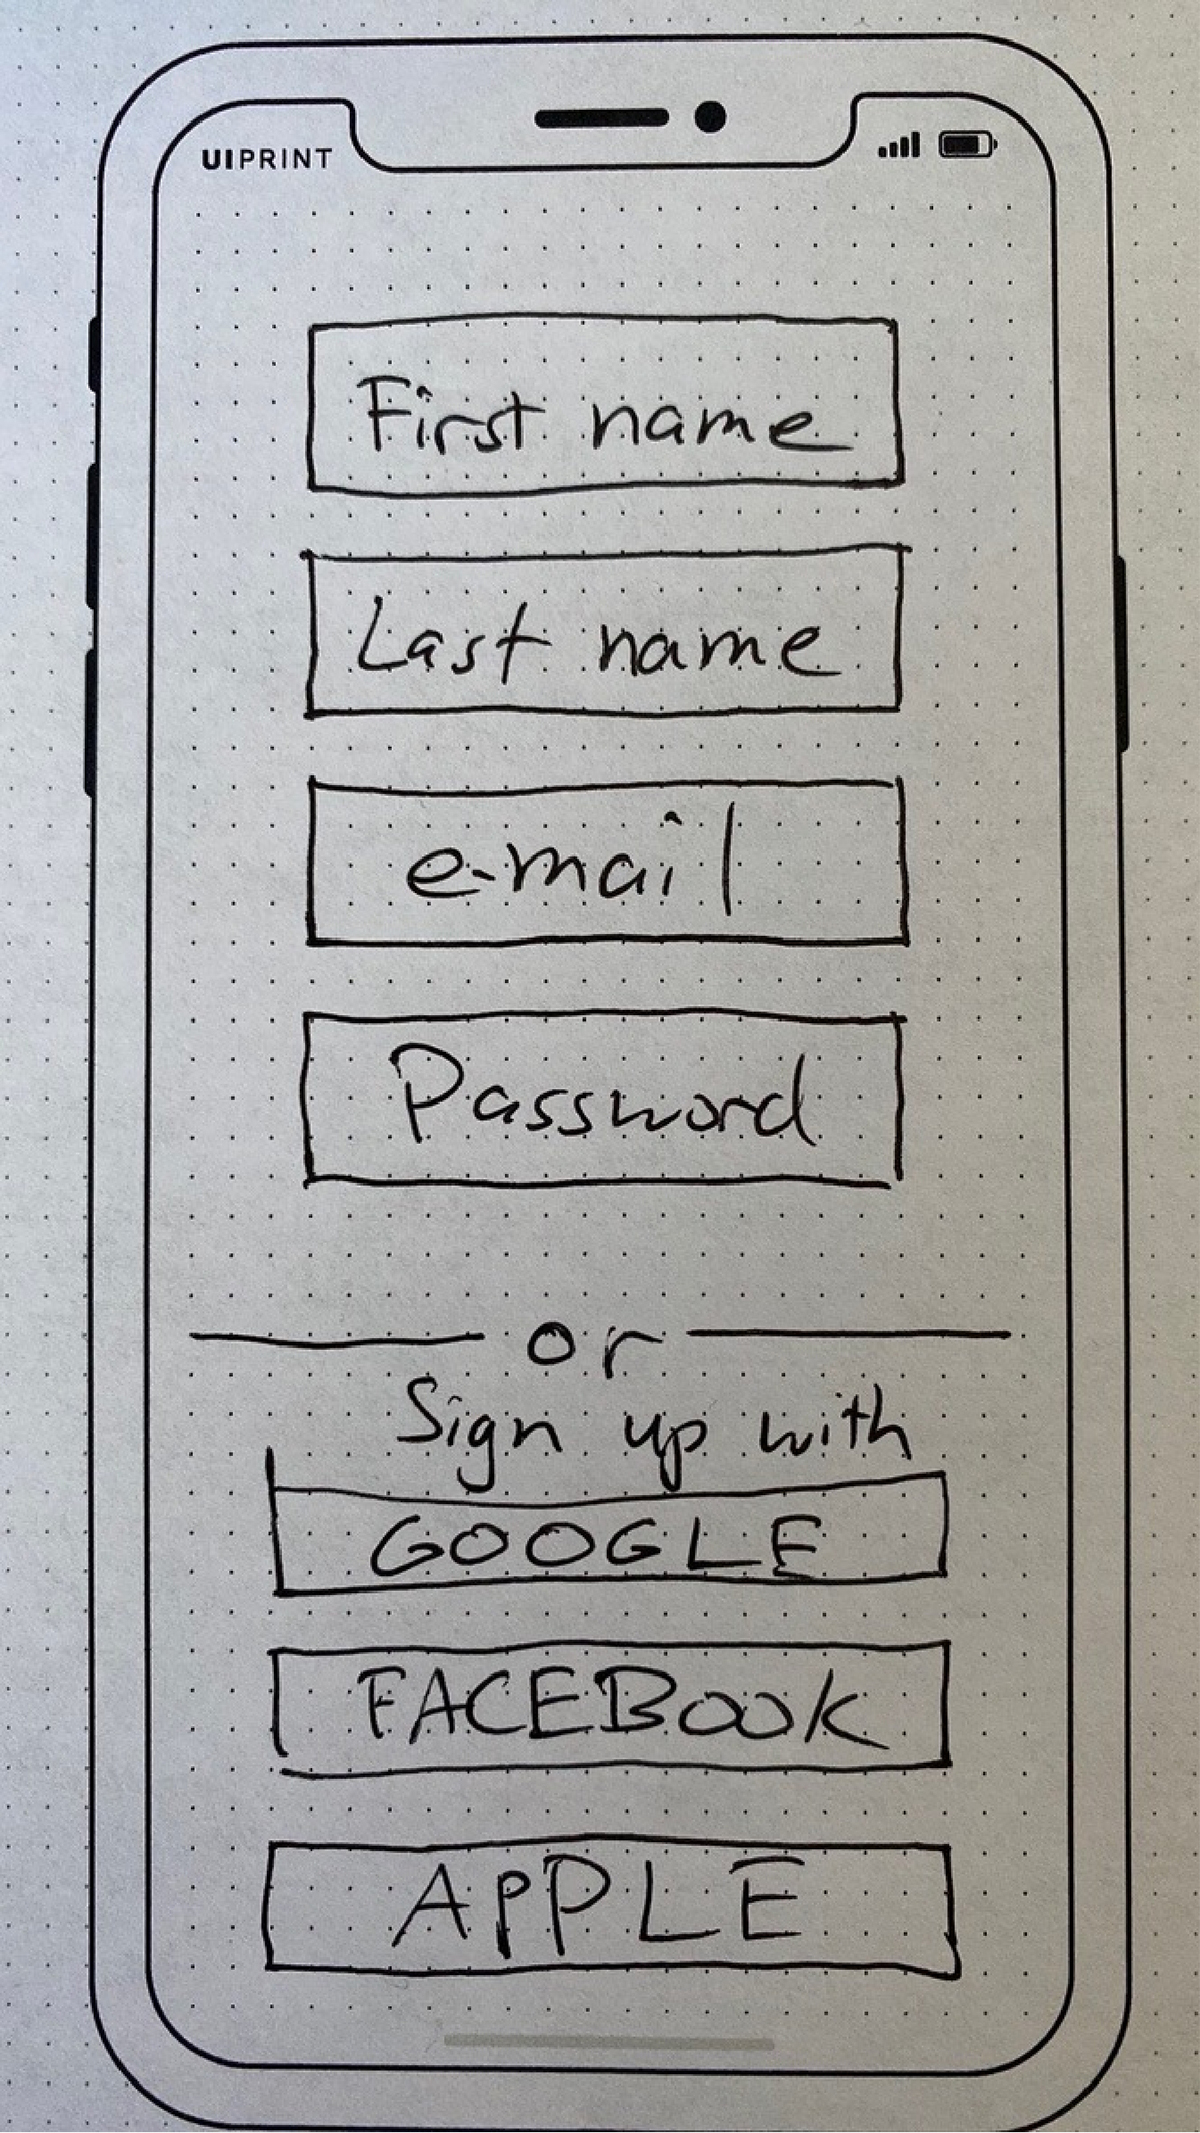 UIPRINT
First name
Last name
e-mail
Password
or
Sign up with
GOOGLE
FACEBOOK
APPLE